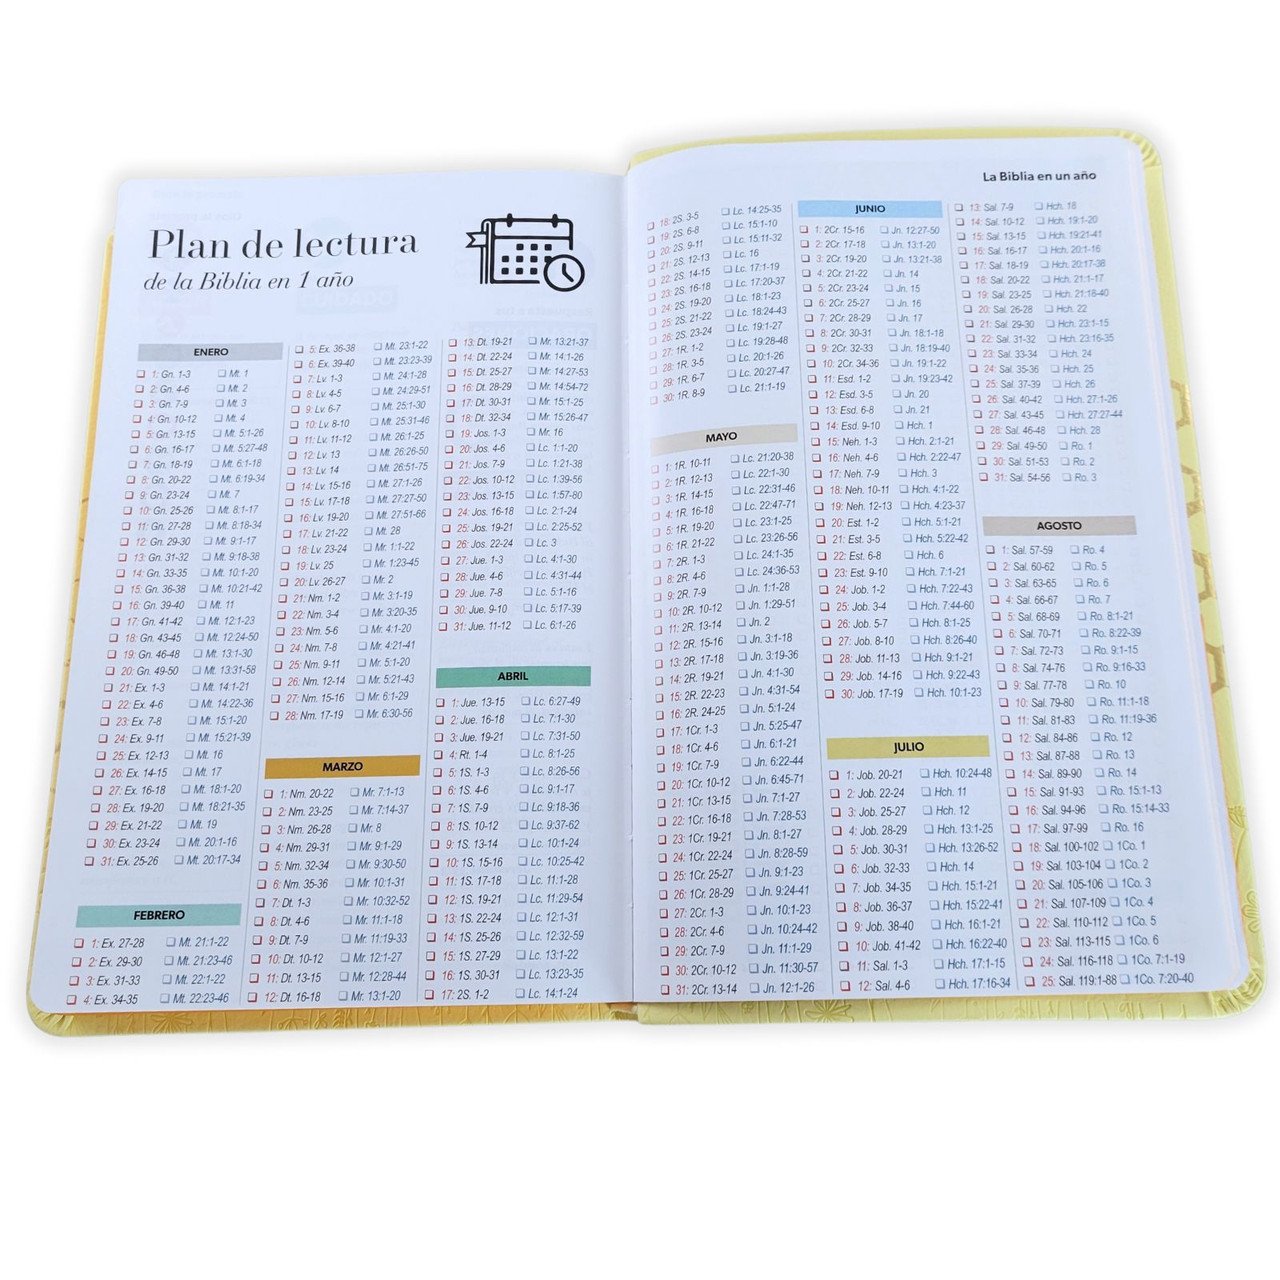 Plan de lectura
de la Biblia en 1 año
ENERO
1: Gn. 1-3 Mt. 1
2: Gn. 4-6 Mt. 2
3: Gn. 7-9 Mt. 3
4: Gn. 10-12 Mt. 4
5: Gn. 13-15 Mt. 5:1-26
6: Gn. 16-17 Mt. 5:27-48
7: Gn. 18-19 Mt. 6:1-18
8: Gn. 20-22 Mt. 6:19-34
9: Gn. 23-24 Mt. 7
10: Gn. 25-26 Mt. 8:1-17
11: Gn. 27-28 Mt. 8:18-34
12: Gn. 29-30 Mt. 9:1-17
13: Gn. 31-32 Mt. 9:18-38
14: Gn. 33-35 Mt. 10:1-20
15: Gn. 36-38 Mt. 10:21-42
16: Gn. 39-40 Mt. 11
17: Gn. 41-42 Mt. 12:1-23
18: Gn. 43-45 Mt. 12:24-50
19: Gn. 46-48 Mt. 13:1-30
20: Gn. 49-50 Mt. 13:31-58
21: Ex. 1-3 Mt. 14:1-21
22: Ex. 4-6 Mt. 14:22-36
23: Ex. 7-8 Mt. 15:1-20
24: Ex. 9-11 Mt. 15:21-39
25: Ex. 12-13 Mt. 16
26: Ex. 14-15 Mt. 17
27: Ex. 16-18 Mt. 18:1-20
28: Ex. 19-20 Mt. 18:21-35
29: Ex. 21-22 Mt. 19
30: Ex. 23-24 Mt. 20:1-16
31: Ex. 25-26 Mt. 20:17-34
FEBRERO
1: Ex. 27-28 Mt. 21:1-22
2: Ex. 29-30 Mt. 21:23-46
3: Ex. 31-33 Mt. 22:1-22
4: Ex. 34-35 Mt. 22:23-46
5: Ex. 36-38 Mt. 23:1-22
6: Ex. 39-40 Mt. 23:23-39
7: Lv. 1-3 Mt. 24:1-28
8: Lv. 4-5 Mt. 24:29-51
9: Lv. 6-7 Mt. 25:1-30
10: Lv. 8-10 Mt. 25:31-46
11: Lv. 11-12 Mt. 26:1-25
12: Lv. 13 Mt. 26:26-50
13: Lv. 14 Mt. 26:51-75
14: Lv. 15-16 Mt. 27:1-26
15: Lv. 17-18 Mt. 27:27-50
16: Lv. 19-20 Mt. 27:51-66
17: Lv. 21-22 Mt. 28
18: Lv. 23-24 Mr. 1:1-22
19: Lv. 25 Mr. 1:23-45
20: Lv. 26-27 Mr. 2
21: Nm. 1-2 Mr. 3:1-19
22: Nm. 3-4 Mr. 3:20-35
23: Nm. 5-6 Mr. 4:1-20
24: Nm. 7-8 Mr. 4:21-41
25: Nm. 9-11 Mr. 5:1-20
26: Nm. 12-14 Mr. 5:21-43
27: Nm. 15-16 Mr. 6:1-29
28: Nm. 17-19 Mr. 6:30-56
MARZO
1: Nm. 20-22 Mr. 7:1-13
2: Nm. 23-25 Mr. 7:14-37
3: Nm. 26-28 Mr. 8
4: Nm. 29-31 Mr. 9:1-29
5: Nm. 32-34 Mr. 9:30-50
6: Nm. 35-36 Mr. 10:1-31
7: Dt. 1-3 Mr. 10:32-52
8: Dt. 4-6 Mr. 11:1-18
9: Dt. 7-9 Mr. 11:19-33
10: Dt. 10-12 Mr. 12:1-27
11: Dt. 13-15 Mr. 12:28-44
12: Dt. 16-18 Mr. 13:1-20
13: Dt. 19-21 Mr. 13:21-37
14: Dt. 22-24 Mr. 14:1-26
15: Dt. 25-27 Mr. 14:27-53
16: Dt. 28-29 Mr. 14:54-72
17: Dt. 30-31 Mr. 15:1-25
18: Dt. 32-34 Mr. 15:26-47
19: Jos. 1-3 Mr. 16
20: Jos. 4-6 Lc. 1:1-20
21: Jos. 7-9 Lc. 1:21-38
22: Jos. 10-12 Lc. 1:39-56
23: Jos. 13-15 Lc. 1:57-80
24: Jos. 16-18 Lc. 2:1-24
25: Jos. 19-21 Lc. 2:25-52
26: Jos. 22-24 Lc. 3
27: Jue. 1-3 Lc. 4:1-30
28: Jue. 4-6 Lc. 4:31-44
29: Jue. 7-8 Lc. 5:1-16
30: Jue. 9-10 Lc. 5:17-39
31: Jue. 11-12 Lc. 6:1-26
ABRIL
1: Jue. 13-15 Lc. 6:27-49
2: Jue. 16-18 Lc. 7:1-30
3: Jue. 19-21 Lc. 7:31-50
4: Rt. 1-4 Lc. 8:1-25
5: 1S. 1-3 Lc. 8:26-56
6: 1S. 4-6 Lc. 9:1-17
7: 1S. 7-9 Lc. 9:18-36
8: 1S. 10-12 Lc. 9:37-62
9: 1S. 13-14 Lc. 10:1-24
10: 1S. 15-16 Lc. 10:25-42
11: 1S. 17-18 Lc. 11:1-28
12: 1S. 19-21 Lc. 11:29-54
13: 1S. 22-24 Lc. 12:1-31
14: 1S. 25-26 Lc. 12:32-59
15: 1S. 27-29 Lc. 13:1-22
16: 1S. 30-31 Lc. 13:23-35
17: 2S. 1-2 Lc. 14:1-24
La Biblia en un año
18: 2S. 3-5 Lc. 14:25-35
19: 2S. 6-8 Lc. 15:1-10
20: 2S. 9-11 Lc. 15:11-32
21: 2S. 12-13 Lc. 16
22: 2S. 14-15 Lc. 17:1-19
23: 2S. 16-18 Lc. 17:20-37
24: 2S. 19-20 Lc. 18:1-23
25: 2S. 21-22 Lc. 18:24-43
26: 2S. 23-24 Lc. 19:1-27
27: 1R. 1-2 Lc. 19:28-48
28: 1R. 3-5 Lc. 20:1-26
29: 1R. 6-7 Lc. 20:27-47
30: 1R. 8-9 Lc. 21:1-19
MAYO
1: 1R. 10-11 Lc. 21:20-38
2: 1R. 12-13 Lc. 22:1-30
3: 1R. 14-15 Lc. 22:31-46
4: 1R. 16-18 Lc. 22:47-71
5: 1R. 19-20 Lc. 23:1-25
6: 1R. 21-22 Lc. 23:26-56
7: 2R. 1-3 Lc. 24:1-35
8: 2R. 4-6 Lc. 24:36-53
9: 2R. 7-9 Jn. 1:1-28
10: 2R. 10-12 Jn. 1:29-51
11: 2R. 13-14 Jn. 2
12: 2R. 15-16 Jn. 3:1-18
13: 2R. 17-18 Jn. 3:19-36
14: 2R. 19-21 Jn. 4:1-30
15: 2R. 22-23 Jn. 4:31-54
16: 2R. 24-25 Jn. 5:1-24
17: 1Cr. 1-3 Jn. 5:25-47
18: 1Cr. 4-6 Jn. 6:1-21
19: 1Cr. 7-9 Jn. 6:22-44
20: 1Cr. 10-12 Jn. 6:45-71
21: 1Cr. 13-15 Jn. 7:1-27
22: 1Cr. 16-18 Jn. 7:28-53
23: 1Cr. 19-21 Jn. 8:1-27
24: 1Cr. 22-24 Jn. 8:28-59
25: 1Cr. 25-27 Jn. 9:1-23
26: 1Cr. 28-29 Jn. 9:24-41
27: 2Cr. 1-3 Jn. 10:1-23
28: 2Cr. 4-6 Jn. 10:24-42
29: 2Cr. 7-9 Jn. 11:1-29
30: 2Cr. 10-12 Jn. 11:30-57
31: 2Cr. 13-14 Jn. 12:1-26
JUNIO
1: 2Cr. 15-16 Jn. 12:27-50
2: 2Cr. 17-18 Jn. 13:1-20
3: 2Cr. 19-20 Jn. 13:21-38
4: 2Cr. 21-22 Jn. 14
5: 2Cr. 23-24 Jn. 15
6: 2Cr. 25-27 Jn. 16
7: 2Cr. 28-29 Jn. 17
8: 2Cr. 30-31 Jn. 18:1-18
9: 2Cr. 32-33 Jn. 18:19-40
10: 2Cr. 34-36 Jn. 19:1-22
11: Esd. 1-2 Jn. 19:23-42
12: Esd. 3-5 Jn. 20
13: Esd. 6-8 Jn. 21
14: Esd. 9-10 Hch. 1
15: Neh. 1-3 Hch. 2:1-21
16: Neh. 4-6 Hch. 2:22-47
17: Neh. 7-9 Hch. 3
18: Neh. 10-11 Hch. 4:1-22
19: Neh. 12-13 Hch. 4:23-37
20: Est. 1-2 Hch. 5:1-21
21: Est. 3-5 Hch. 5:22-42
22: Est. 6-8 Hch. 6
23: Est. 9-10 Hch. 7:1-21
24: Job. 1-2 Hch. 7:22-43
25: Job. 3-4 Hch. 7:44-60
26: Job. 5-7 Hch. 8:1-25
27: Job. 8-10 Hch. 8:26-40
28: Job. 11-13 Hch. 9:1-21
29: Job. 14-16 Hch. 9:22-43
30: Job. 17-19 Hch. 10:1-23
JULIO
1: Job. 20-21 Hch. 10:24-48
2: Job. 22-24 Hch. 11
3: Job. 25-27 Hch. 12
4: Job. 28-29 Hch. 13:1-25
5: Job. 30-31 Hch. 13:26-52
6: Job. 32-33 Hch. 14
7: Job. 34-35 Hch. 15:1-21
8: Job. 36-37 Hch. 15:22-41
9: Job. 38-40 Hch. 16:1-21
10: Job. 41-42 Hch. 16:22-40
11: Sal. 1-3 Hch. 17:1-15
12: Sal. 4-6 Hch. 17:16-34
13: Sal. 7-9 Hch. 18
14: Sal. 10-12 Hch. 19:1-20
15: Sal. 13-15 Hch. 19:21-41
16: Sal. 16-17 Hch. 20:1-16
17: Sal. 18-19 Hch. 20:17-38
18: Sal. 20-22 Hch. 21:1-17
19: Sal. 23-25 Hch. 21:18-40
20: Sal. 26-28 Hch. 22
21: Sal. 29-30 Hch. 23:1-15
22: Sal. 31-32 Hch. 23:16-35
23: Sal. 33-34 Hch. 24
24: Sal. 35-36 Hch. 25
25: Sal. 37-39 Hch. 26
26: Sal. 40-42 Hch. 27:1-26
27: Sal. 43-45 Hch. 27:27-44
28: Sal. 46-48 Hch. 28
29: Sal. 49-50 Ro. 1
30: Sal. 51-53 Ro. 2
31: Sal. 54-56 Ro. 3
AGOSTO
1: Sal. 57-59 Ro. 4
2: Sal. 60-62 Ro. 5
3: Sal. 63-65 Ro. 6
4: Sal. 66-67 Ro. 7
5: Sal. 68-69 Ro. 8:1-21
6: Sal. 70-71 Ro. 8:22-39
7: Sal. 72-73 Ro. 9:1-15
8: Sal. 74-76 Ro. 9:16-33
9: Sal. 77-78 Ro. 10
10: Sal. 79-80 Ro. 11:1-18
11: Sal. 81-83 Ro. 11:19-36
12: Sal. 84-86 Ro. 12
13: Sal. 87-88 Ro. 13
14: Sal. 89-90 Ro. 14
15: Sal. 91-93 Ro. 15:1-13
16: Sal. 94-96 Ro. 15:14-33
17: Sal. 97-99 Ro. 16
18: Sal. 100-102 1Co. 1
19: Sal. 103-104 1Co. 2
20: Sal. 105-106 1Co. 3
21: Sal. 107-109 1Co. 4
22: Sal. 110-112 1Co. 5
23: Sal. 113-115 1Co. 6
24: Sal. 116-118 1Co. 7:1-19
25: Sal. 119:1-88 1Co. 7:20-40